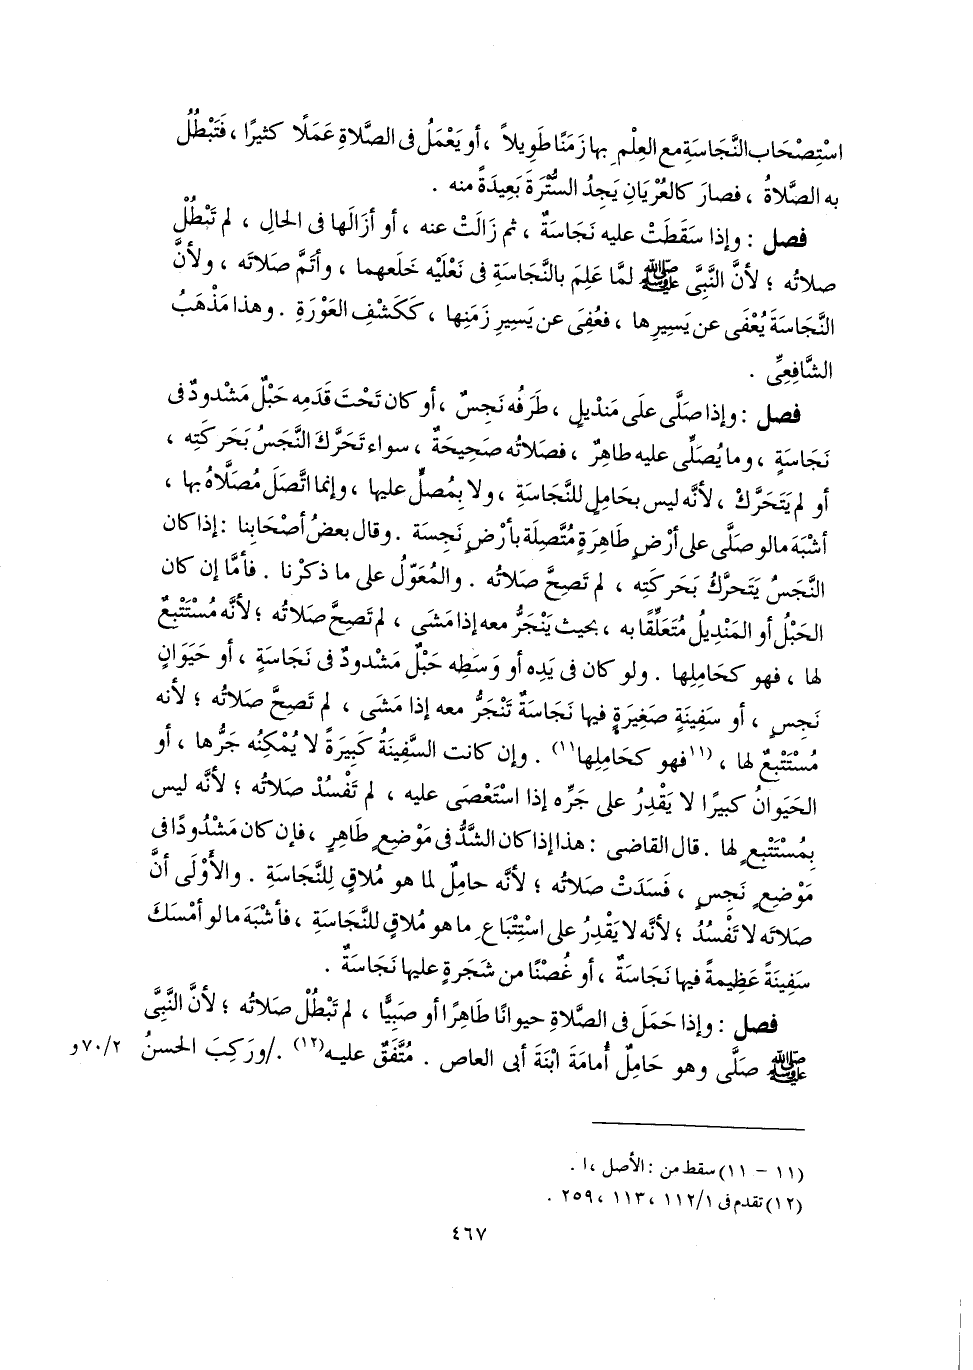 اسْتِصْحَاب النَّجَاسَةِ مع العِلْمِ بها زَمَنًا طَوِيلاً ، أو يَعْمَلُ فى الصَّلاةِ عَمَلًا كثيرًا ، فَتَبْطُلُ
به الصَّلاةُ ، فصارَ كالعُرْيَانِ يَجِدُ السُّتْرَةَ بَعِيدَةً منه .
فصل : وإذا سَقَطَتْ عليه نَجَاسَةٌ ، ثم زَالَتْ عنه ، أو أزَالَها فى الحالِ ، لم تَبْطُلْ
صلاتُه ؛ لأنَّ النَّبِىَّ ﷺ لمَّا عَلِمَ بالنَّجَاسَةِ فى نَعْلَيْه خَلَعهما ، وأتَمَّ صَلاتَه ، ولأنَّ
النَّجَاسَةَ يُعْفَى عن يَسِيرِها ، فعُفِىَ عن يَسِيرِ زَمَنِها ، كَكَشْفِ العَوْرَةِ . وهذا مَذْهَبُ
الشَّافِعِىِّ .
فصل : وإذا صَلَّى علَى مَنْدِيلٍ ، طَرَفُه نَجِسٌ ، أو كان تَحْتَ قَدَمِه حَبْلٌ مَشْدودٌ فى
نَجَاسَةٍ ، وما يُصَلِّى عليه طاهِرٌ ، فصَلاتُه صَحِيحَةٌ ، سواء تَحَرَّكَ النَّجَسُ بَحَرَكَتِه ،
أو لم يَتَحَرَّكْ ، لأنَّه ليس بحَامِلٍ للنَّجَاسَةِ ، ولا بِمُصلٍّ عليها ، وإنما اتَّصَلَ مُصَلَّاهُ بها ،
أشْبَهَ مالو صَلَّى على أرْضٍ طَاهِرَةٍ مُتَّصِلَة بأرْضٍ نَجِسَة . وقال بعضُ أصْحَابِنا : إذا كان
النَّجَسُ يَتَحرَّكُ بَحَرَكَتِه ، لم تَصِحَّ صَلاتُه . والمُعَوّلُ على ما ذكرْنا . فأمَّا إن كان
الحَبْلُ أو المَنْدِيلُ مُتَعَلِّقًا به ، بحيث يَنْجَرُّ معه إذا مَشَى ، لم تَصِحَّ صَلاتُه ؛ لأنَّه مُسْتَتْبِعٌ
لها ، فهو كحَامِلِها . ولو كان فى يَدِه أو وَسَطِه حَبْلٌ مَشْدودٌ فى نَجَاسَةٍ ، أو حَيَوَانٍ
نَجِسٍ ، أو سَفِينَةٍ صَغِيرَةٍ فيها نَجَاسَةٌ تَنْجَرُّ معه إذا مَشَى ، لم تَصِحَّ صَلاتُه ؛ لأنه
مُسْتَتْبِعٌ لها ، (١١فهو كحَامِلِها١١) . وإن كانت السَّفِينَةُ كَبِيرَةً لا يُمْكِنُه جَرُّها ، أو
الحَيَوانُ كبيرًا لا يَقْدِرُ على جَرِّه إذا اسْتَعْصَى عليه ، لم تَفْسُدْ صَلاتُه ؛ لأنَّه ليس
بِمُسْتَتْبِعٍ لها . قال القاضى : هذا إذا كان الشَّدُّ فى مَوْضِعٍ طَاهِرٍ ، فإن كان مَشْدُودًا فى
مَوْضِعٍ نَجِسٍ ، فَسَدَتْ صَلاتُه ؛ لأنَّه حامِلٌ لما هو مُلاقٍ لِلنَّجَاسَةِ . والأَوْلَى أنَّ
صَلاتَه لا تَفْسُدُ ؛ لأنَّه لا يَقْدِرُ على اسْتِتْبَاعِ ما هو مُلاقٍ للنَّجَاسَةِ ، فأشْبَهَ مالو أمْسَكَ
سَفِينَةً عَظِيمةً فيها نَجَاسَةٌ ، أو غُصْنًا من شَجَرةٍ عليها نَجَاسَةٌ .
فصل : وإذا حَمَلَ فى الصَّلاةِ حيوانًا طَاهِرًا أو صَبِيًّا ، لم تَبْطُلْ صَلاتُه ؛ لأنَّ النَّبِىَّ
ﷺ صَلَّى وهو حَامِلٌ أُمامَةَ ابْنَةَ أبى العاص . مُتَّفَقٌ عليه(١٢) . /ورَكِبَ الحَسنُ ٧٠/٢ و
(١١ - ١١) سقط من : الأصل ، ا .
(١٢) تقدم فى ١١٢/١ ، ١١٣ ، ٢٥٩ .
٤٦٧